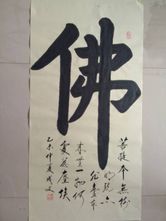 佛
菩提本無樹
明鏡亦
非臺本
來無一物何
處惹塵埃
乙未仲夏